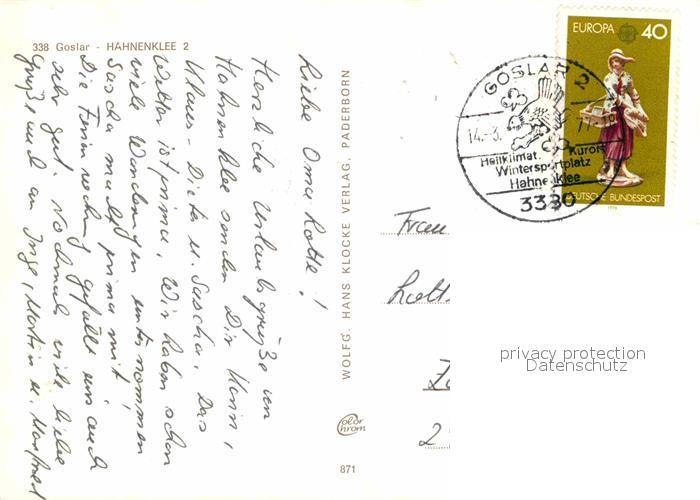 338 Goslar - HAHNENKLEE 2
Liebe Oma Lotte!
Herzliche Urlaubsgrüße von
Hahnenklee senden Dir
Klaus-Dieter u. Sascha. Das
Wetter ist prima. Wir haben schon
viele Wanderungen unternommen
Sascha macht prima mit!
Die Ferienwohnung gefällt uns auch
sehr gut. Nochmals viele liebe
Grüße auch an Inge, Martin u. Manfred
WOLFG. HANS KLOCKE VERLAG, PADERBORN
Color
chrom
871
EUROPA 40
DEUTSCHE BUNDESPOST
1976
GOSLAR 2
14.-3.
77-18
Heilklimat. Kurort
Wintersportplatz
Hahnenklee
3380
Frau
Lott
2
privacy protection
Datenschutz